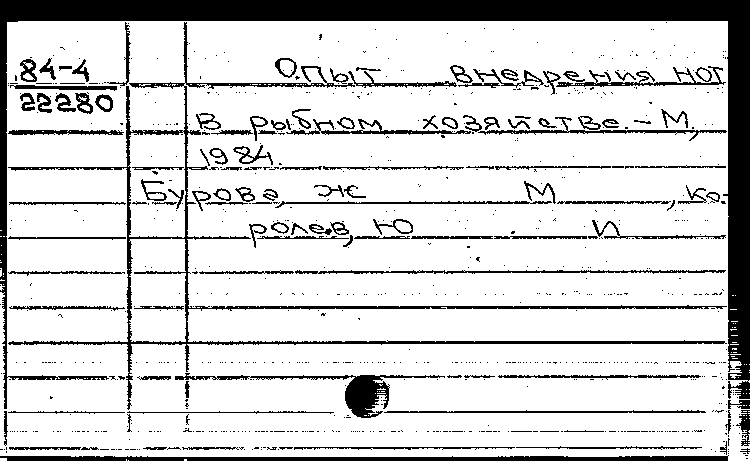 84-4 Опыт внедрения НОТ
22280
в рыбном хозяйстве. - М,
1984.
Бурове, Ж М, Ко-
ролев, Ю И